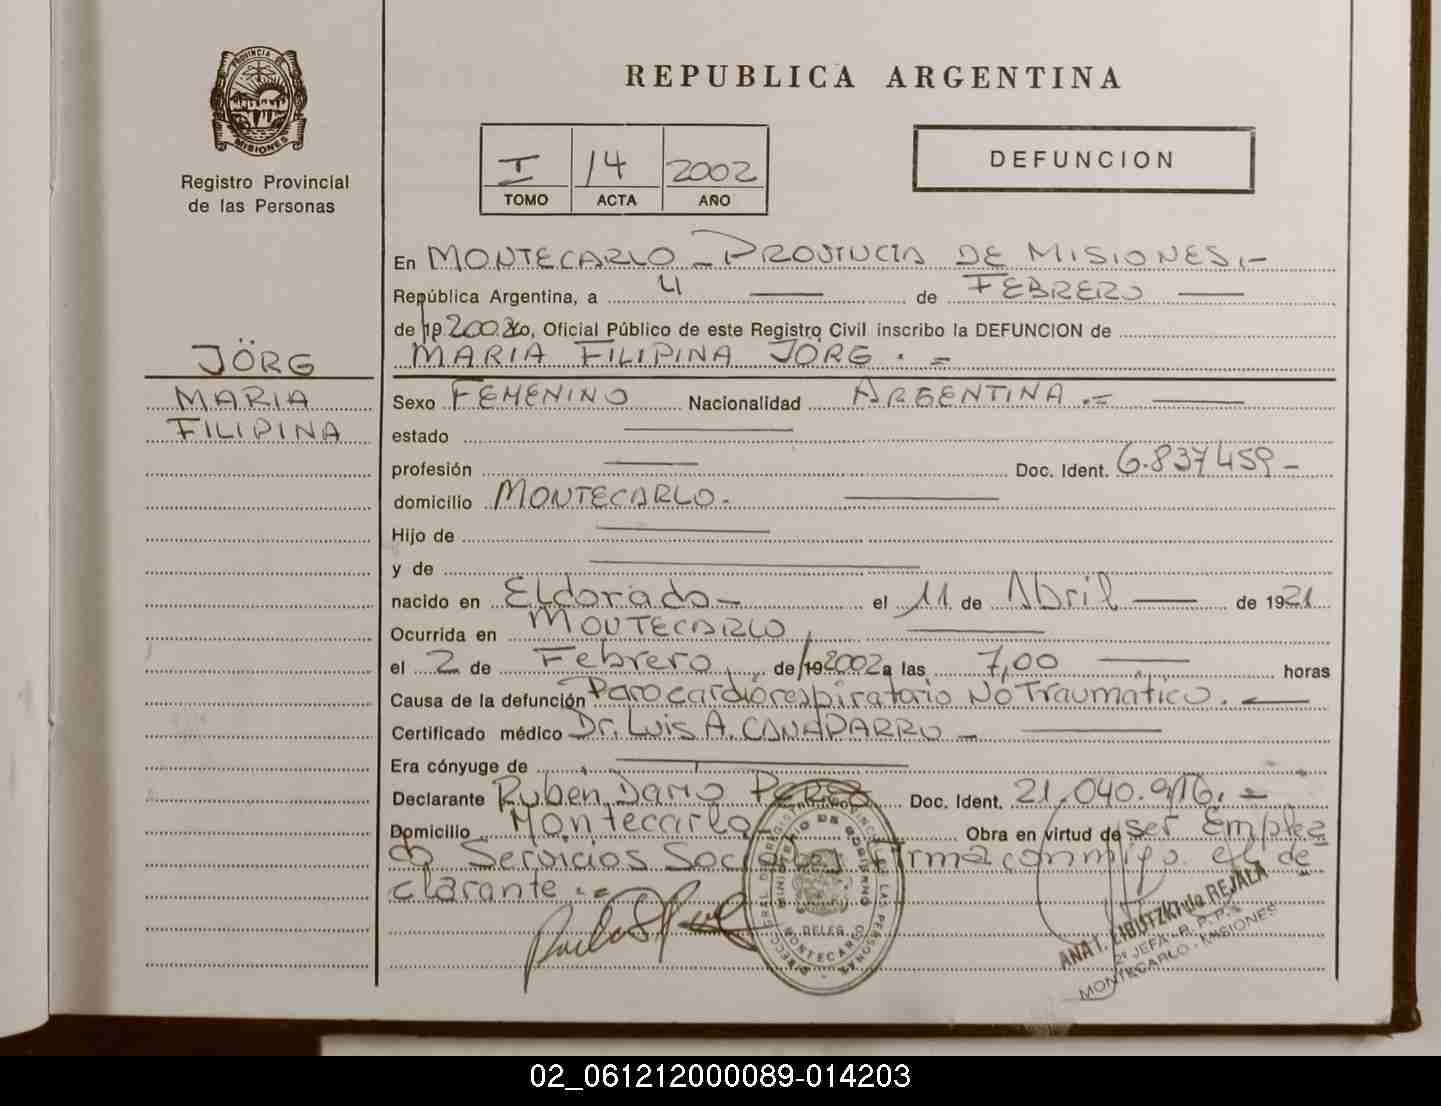 PROVINCIA DE
MISIONES
Registro Provincial
de las Personas
REPUBLICA ARGENTINA
I 14 2002
TOMO ACTA AÑO
DEFUNCION
En MONTECARLO - PROVINCIA DE MISIONES.-
República Argentina, a 4 de FEBRERO
de 19 2002 yo, Oficial Público de este Registro Civil inscribo la DEFUNCION de
MARIA FILIPINA JÖRG . =
JÖRG
MARIA
FILIPINA
Sexo FEMENINO Nacionalidad ARGENTINA .=
estado
profesión Doc. Ident. 6.837459 -
domicilio MONTECARLO -
Hijo de
y de
nacido en Eldorado - el 11 de Abril de 1921
Ocurrida en MONTECARLO
el 2 de Febrero de 19 2002 a las 7,00 horas
Causa de la defunción Parocardiorespiratorio No Traumatico.
Certificado médico Dr. Luis A. CANAPARRO -
Era cónyuge de
Declarante Rubén Dario PEREZ Doc. Ident. 21.040.916. =
Domicilio Montecarlo - Obra en virtud de ser Emplea
do Servicios Sociales Firma conmigo el de
clarante . =
MINISTERIO DE GOBIERNO
DELEG.
MONTECARLO
ANA I. de REJALA
2º JEFA - R. P. P.
MONTECARLO - MISIONES
02_061212000089-014203